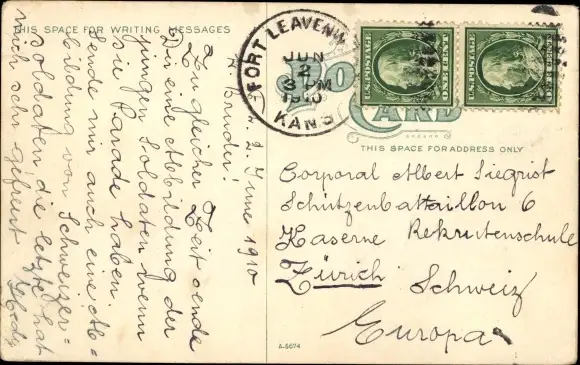 THIS SPACE FOR WRITING MESSAGES
2. June 1910
Bruder!
Zu gleicher Zeit sende
Dir eine Abbildung der
jungen Soldaten wenn
sie Parade haben.
Sende mir auch eine Ab=
bildung von Schweizer=
soldaten, die letzte hat
mich sehr gefreut
FORT LEAVENW
JUN
2
3 PM
1910
KANS
U.S. POSTAGE
ONE CENT
U.S. POSTAGE
ONE CENT
CARD
THIS SPACE FOR ADDRESS ONLY
Corporal Albert Siegrist
Schützenbattaillon 6
Kaserne Rekrutenschule
Zürich Schweiz
Europa
A-5674